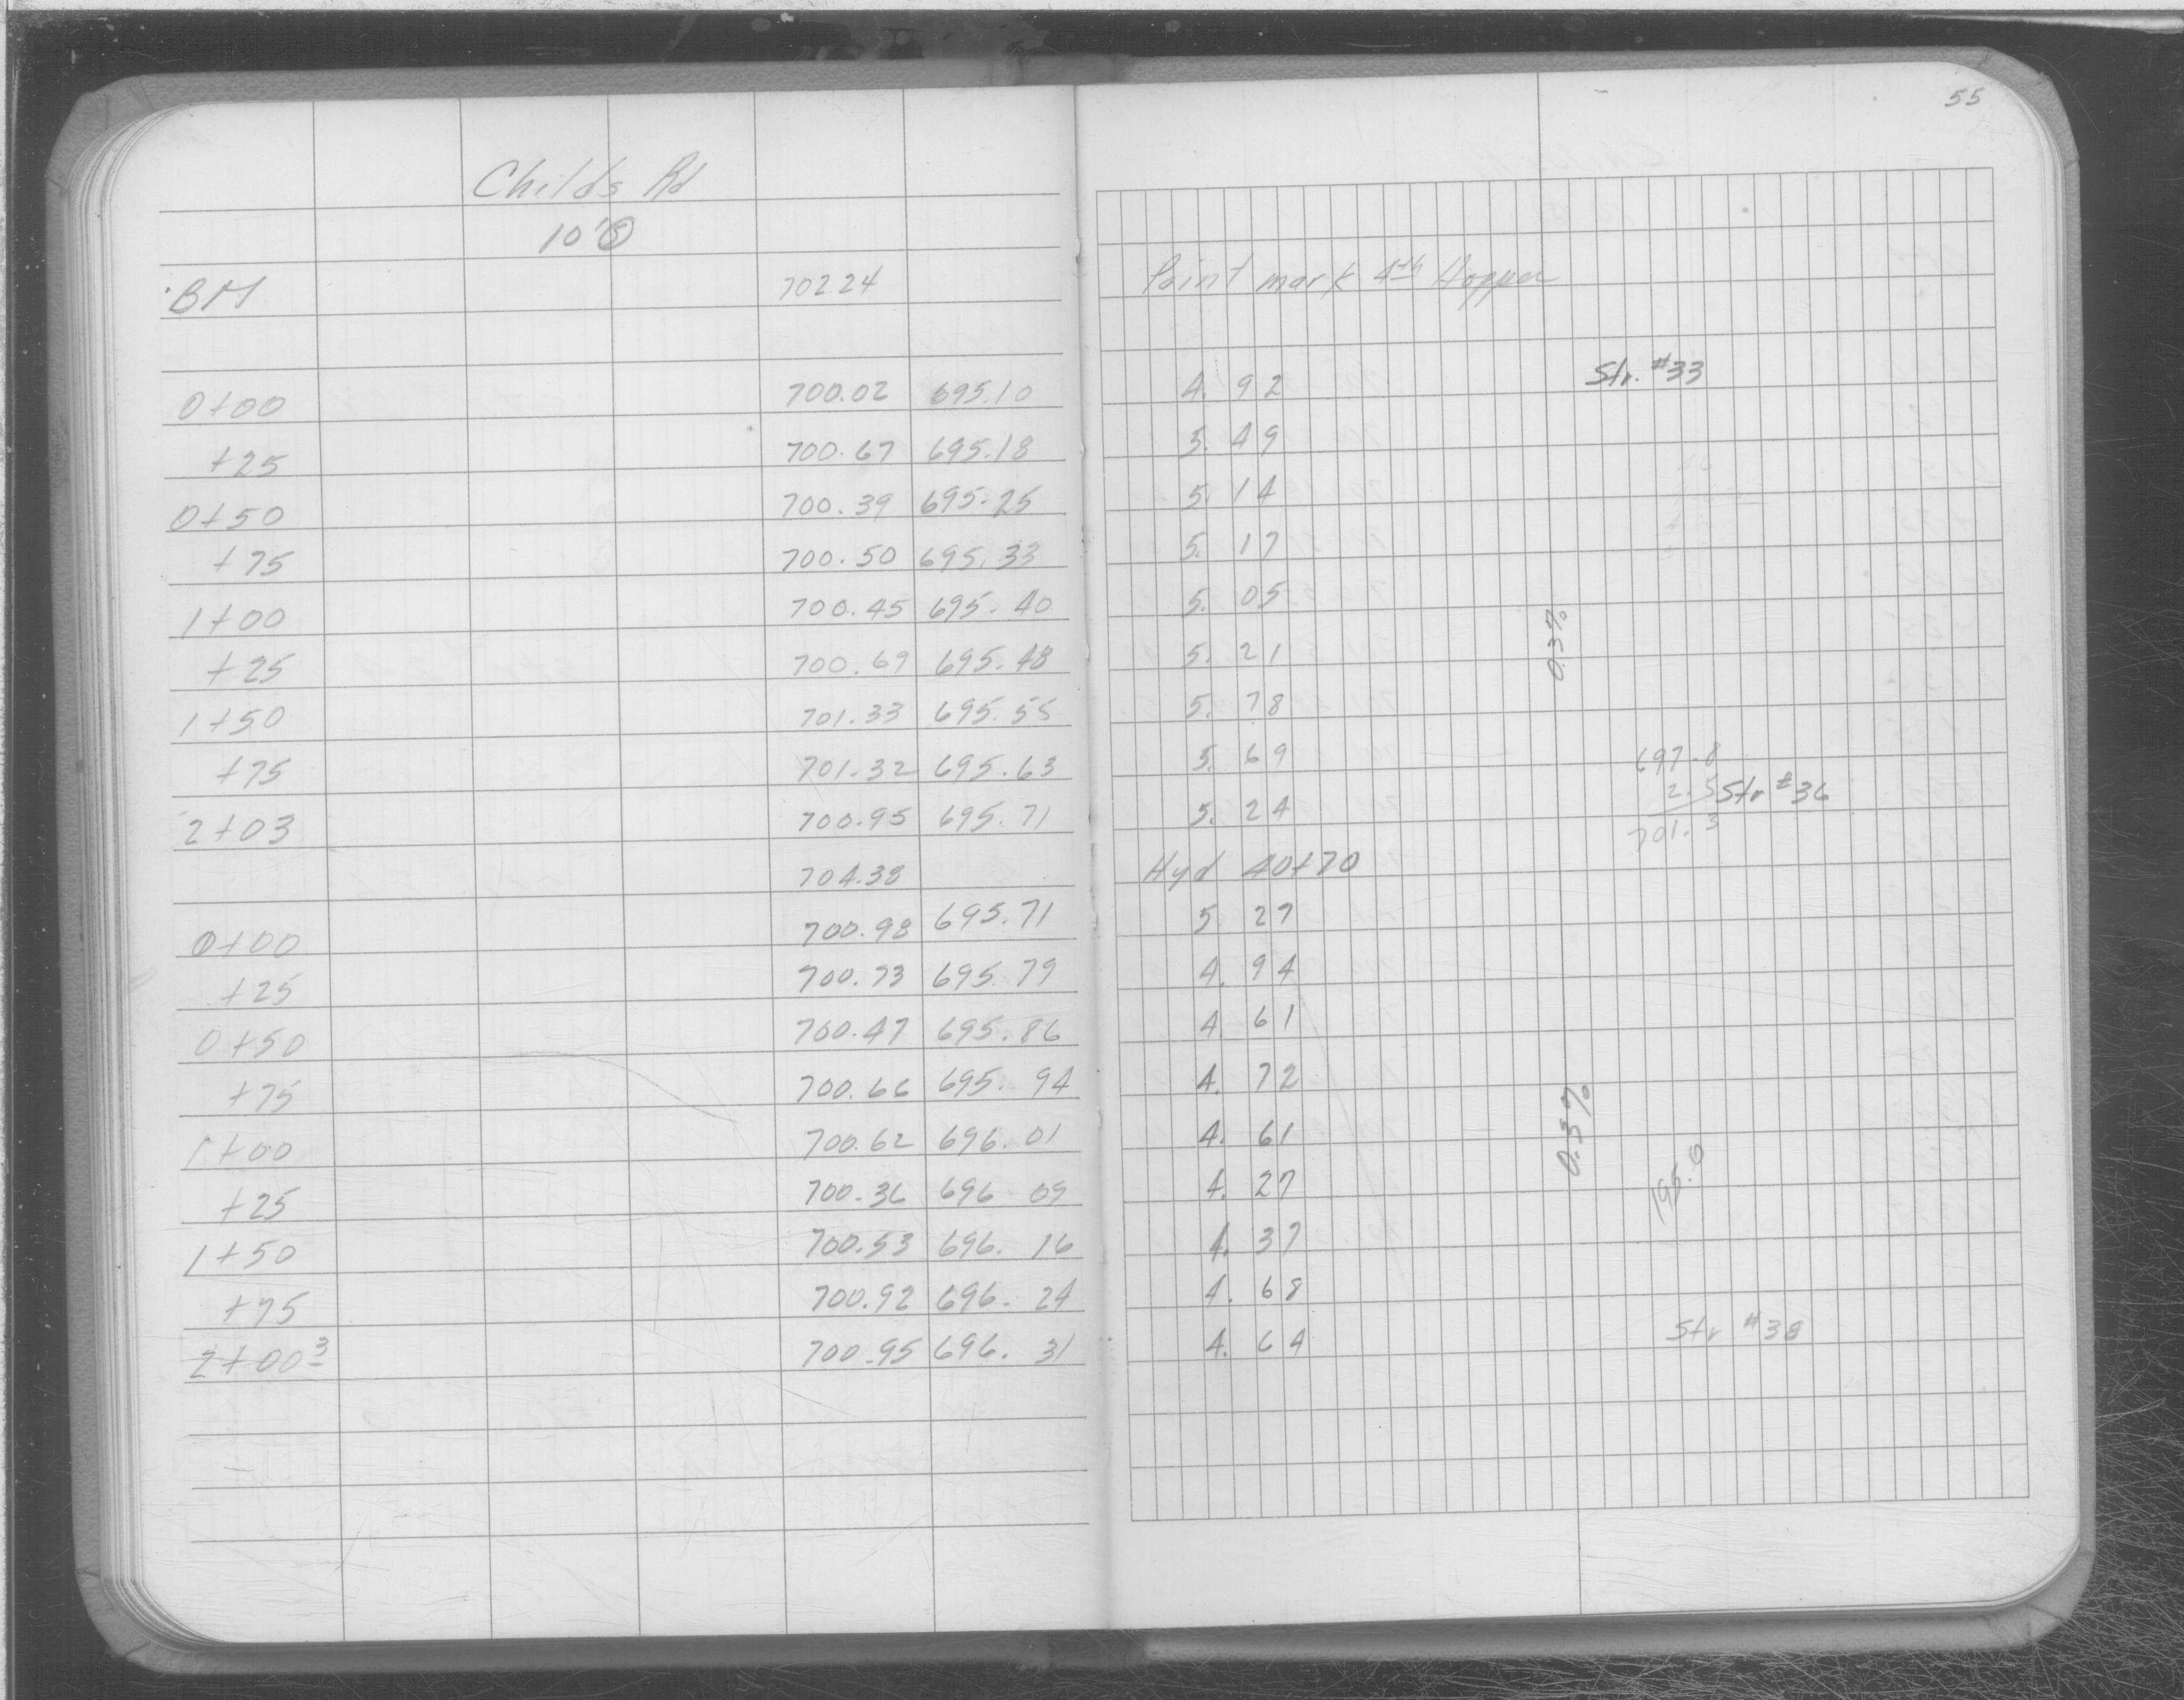 55
Childs Rd
10'Ⓢ
BM 702 24 Point mark 4th Hopper
0+00 700.02 695.10 4. 92 Str. #33
+25 700.67 695.18 5. 49
0+50 700.39 695.25 5. 14
+75 700.50 695.33 5. 17
1+00 700.45 695.40 5. 05
0.3%
+25 700.69 695.48 5. 21
1+50 701.33 695.55 5. 78
+75 701.32 695.63 5. 69 697.8
2.5 Str #36
2+03 700.95 695.71 5. 24 701.3
704.38 Hyd 40+70
0+00 700.98 695.71 5. 27
+25 700.73 695.79 4. 94
0+50 700.47 695.86 4. 61
+75 700.66 695.94 4. 72
0.3%
1+00 700.62 696.01 4. 61
195.0
+25 700.36 696 09 4. 27
1+50 700.53 696.16 4. 37
+75 700.92 696.24 4. 68
2+00³ 700.95 696.31 4. 64 Str #38